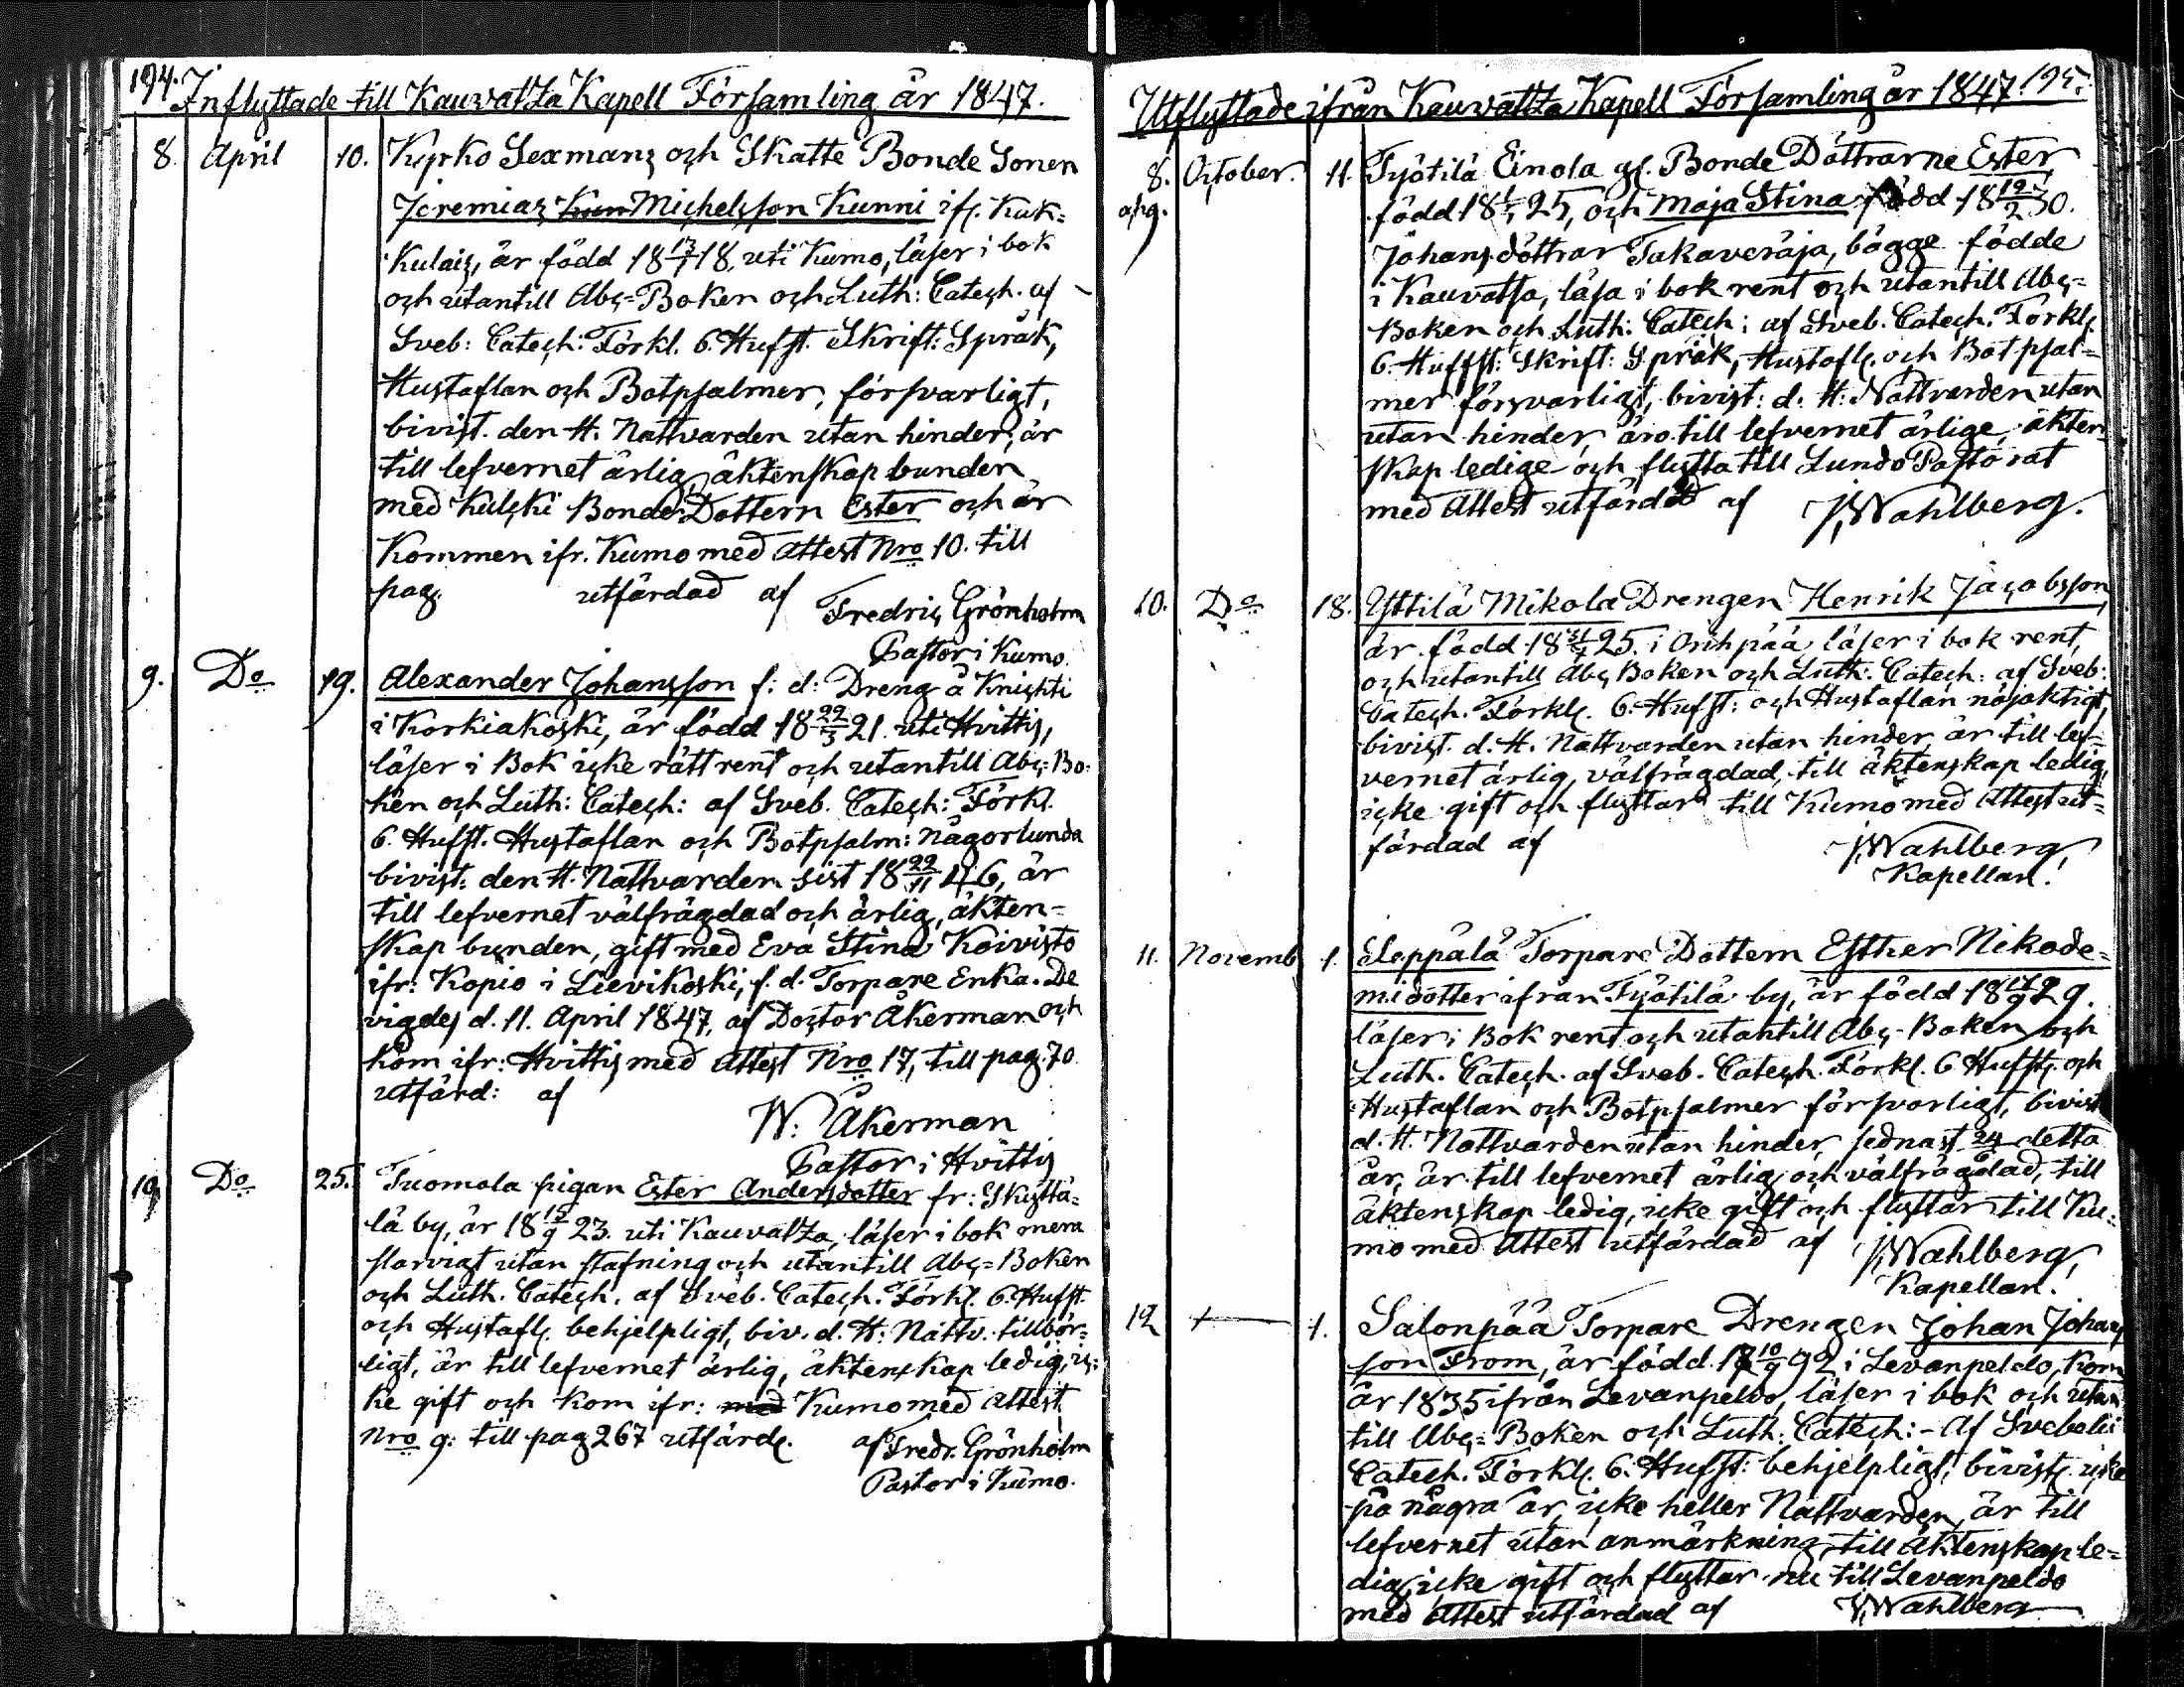 194.
Inflyttade till Kauvatza Kapell Församling år 1847.
8. April 10. Kyrko Sexmans och Skatte Bonde Sonen
Jeremias Michelsson Kunni ifr. Kuk=
kulais, är född 18 13/1 18, uti Kumo, läser i bok
och utantill Abc=Boken och Luth: Catech. af
Sveb: Catech: Förkl. 6. Hufst. Skrift: Språk,
Hustaflan och Botpsalmer, försvarligt,
bivist. den H. Nattvarden utan hinder, är
till lefvernet ärlig, äktenskap bunden
med Kulski Bonde Dottern Ester och är
Kommen ifr. Kumo med attest Nro 10. till
pag. utfärdad af Fredric Grönholm
Pastor i Kumo.
9. Do 19. Alexander Johansson f: d: Dreng å Knichti
i Korkiakoski, är född 18 22/3 21. uti Hvittis,
läser i Bok icke rätt rent och utantill Abc=Bo=
ken och Luth: Catech: af Sveb. Catech: Förkl.
6. Hufst. Hustaflan och Botpsalm: Någorlunda
bivist: den H. Nattvarden sist 18 22/11 46, är
till lefvernet välfrägdad och ärlig, äkten=
skap bunden, gift med Eva Stina Koivisto
ifr: Kopio i Lievikoski, f. d. Torpare Enka. De
vigdes d. 11. April 1847, af Doctor Åkerman och
kom ifr: Hvittis med Attest Nro 17, till pag. 70
utfärd: af
W: Åkerman
Pastor i Hvittis
10. Do 25. Tuomola pigan Ester Andersdotter fr: Skyttä=
lä by, är 18 15/9 23. uti Kauvatza, läser i bok mera
slarvigt utan stafning och utantill Abc=Boken
och Luth. Catech. af Sveb. Catech. Förkl. 6. Hufst.
och Hustafl. behjelpligt, biv. d. H. Nattv. tillbör=
ligt, är till lefvernet ärlig, äktenskap ledig, ic=
ke gift och kom ifr: med Kumo med attest
Nro 9: till pag 267 utfärd. af Fredr. Grönholm
Pastor i Kumo.
Utflyttade ifrån Kauvattza Kapell Församling år 1847. 195.
8. October. 11. Työtilä Einola gl. Bonde Döttrarne Ester,
född 18 25, och Maja Stina född 18 19/2 30.
Johansdöttrar Takaveräja, bägge födde
i Kauvatsa, läsa i bok rent och utantill Abc=
Boken och Luth: Catech: af Sveb. Catech. Förkl.
6. Hufst: Skrift: Språk, Hustafl. och Botpsal=
mer försvarligt, bivist: d. H: Nattvarden utan
utan hinder, äro till lefvernet ärlige, äkten
skap ledige och flytta till Lundo Pastorat
med Attest utfärdad af J. Wahlberg.
10. Do 18. Yttilä Mikola Drengen Henrik Jacobsson,
är född 18 25. i Orihpää läser i bok rent,
och utantill Abc Boken och Luth: Catech: af Sveb:
Catech. Förkl. 6. Hufst: och Hustaflan nöjaktigt,
bivist. d. H. Nattvarden utan hinder, är till lef=
vernet ärlig, välfrägdad, till äktenskap ledig,
icke gift och flyttar till Kumo med Attest ut=
färdad af J. Wahlberg,
Kapellan.
11. Novemb. 1. Seppälä Torpare Dottern Esther Nikode=
midotter ifrån Työtilä by, är född 18 29.
läser i Bok rent och utantill Abc-Boken och
Luth. Catech. af Sveb. Catech. Förkl. 6 Hufst. och
Hustaflan och Botpsalmer försvarligt, bivist
d. H. Nattvarden utan hinder, sednast detta
år, är till lefvernet ärlig och välfrägdad, till
äktenskap ledig, icke gift och flyttar till Ku=
mo med Attest utfärdad af J. Wahlberg,
Kapellan.
12 1. Salonpää Torpare Drengen Johan Johans
son From, är född 10/9 92 i Levanpeldo, Kom
år 1835 ifrån Levanpeldo, läser i bok och utan
till Abc=Boken och Luth: Catech:- Af Svebelii
Catech. Förkl. 6. Hufst: behjelpligt, bivist. icke
på några år, icke heller Nattvarden, är till
lefvernet utan anmärkning, till äktenskap le=
dig, icke gift och flyttar nu till Levanpeldo
med Attest utfärdad af J. Wahlberg